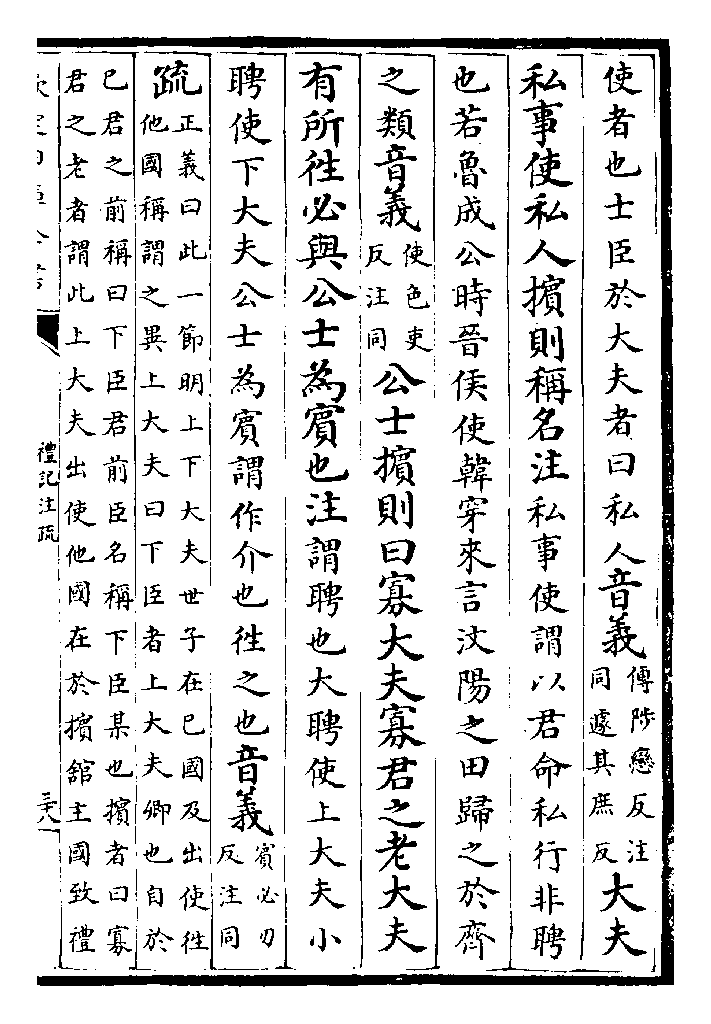 使者也士臣於大夫者曰私人音義傳陟戀反注同遽其庶反大夫
私事使私人擯則稱名注私事使謂以君命私行非聘
也若魯成公時晉侯使韓穿來言汶陽之田歸之於齊
之類音義使色吏反注同公士擯則曰寡大夫寡君之老大夫
有所徃必與公士為賔也注謂聘也大聘使上大夫小
聘使下大夫公士為賔謂作介也徃之也音義賔必刃反注同
疏正義曰此一節明上下大夫世子在已國及出使徃
他國稱謂之異上大夫曰下臣者上大夫卿也自於
已君之前稱曰下臣君前臣名稱下臣某也擯者曰寡
君之老者謂此上大夫出使他國在於擯舘主國致禮
禮記注疏